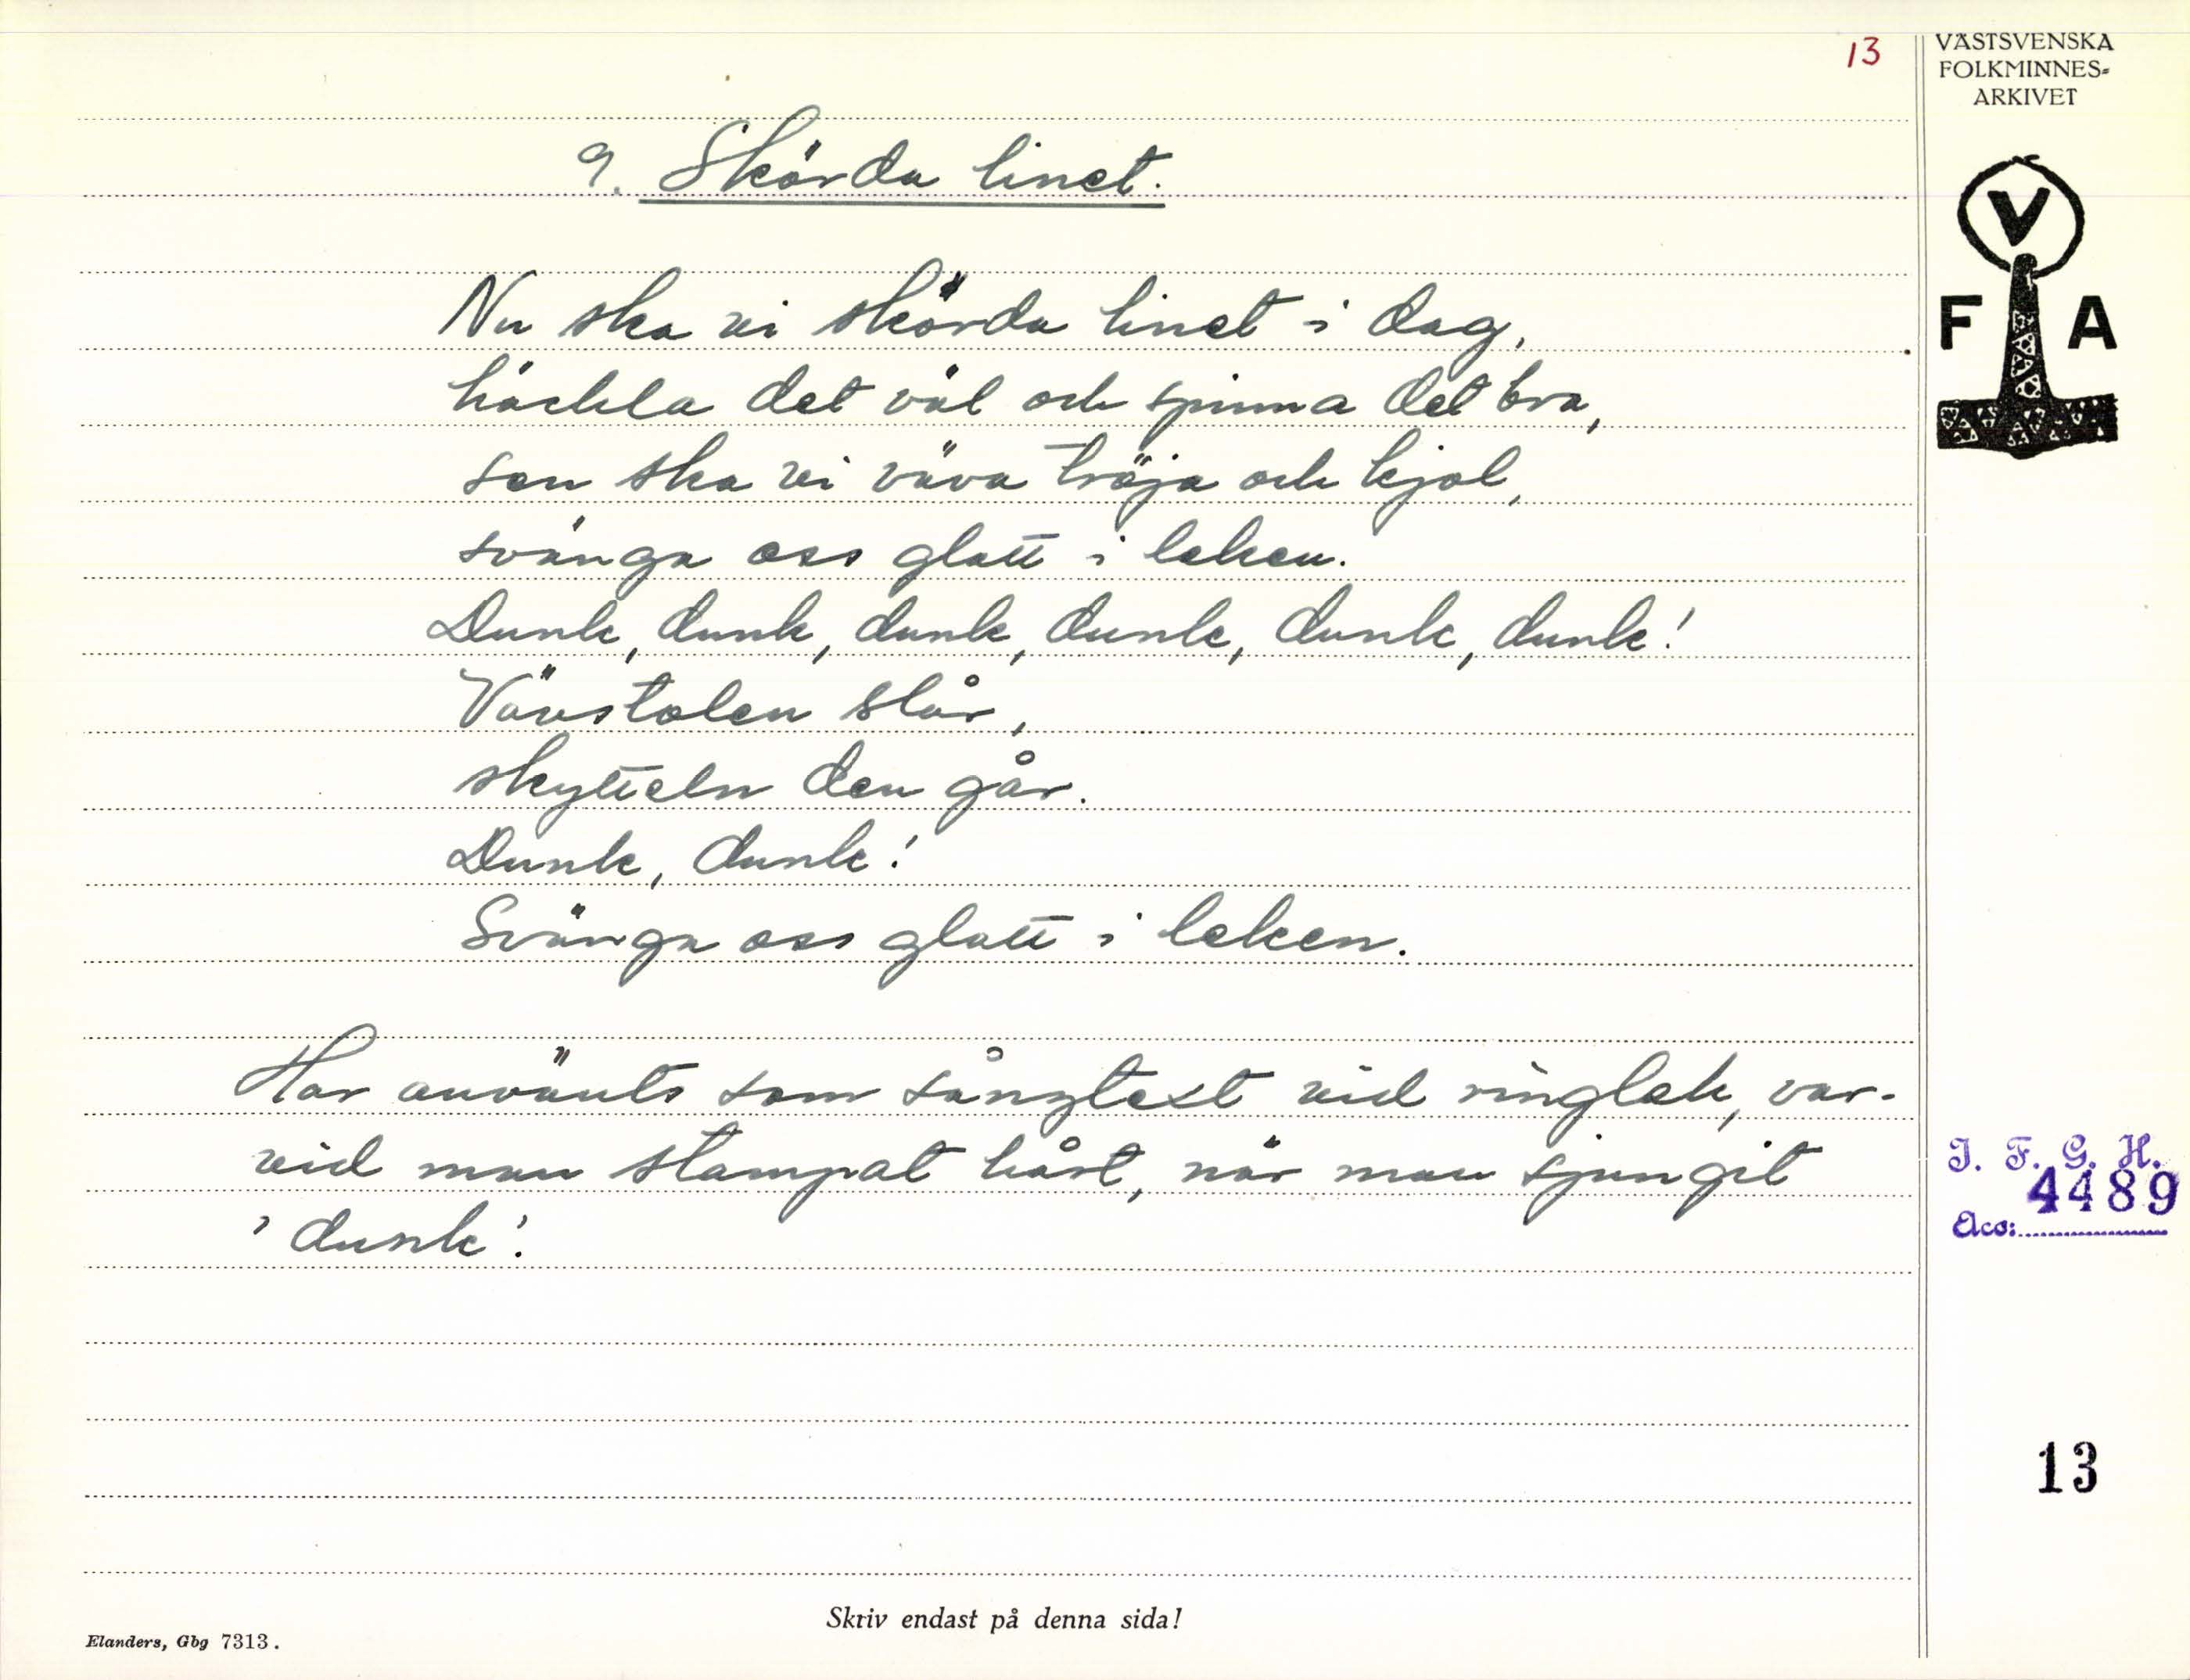 13
VÄSTSVENSKA
FOLKMINNES=
ARKIVET
V
F A
9. Skörda linet.
Nu ska vi skörda linet i dag,
häckla det väl och spinna det bra,
sen ska vi väva tröja och kjol,
svänga oss glatt i leken.
Dunk, dunk, dunk, dunk, dunk, dunk!
Vävstolen slår,
skytteln den går.
Dunk, dunk!
Svänga oss glatt i leken.
Har använts som sångtext vid ringlek, var-
vid man stampat hårt, när man sjungit
'dunk'.
I. F. G. H.
4489
Acc:
13
Skriv endast på denna sida!
Elanders, Gbg 7313.